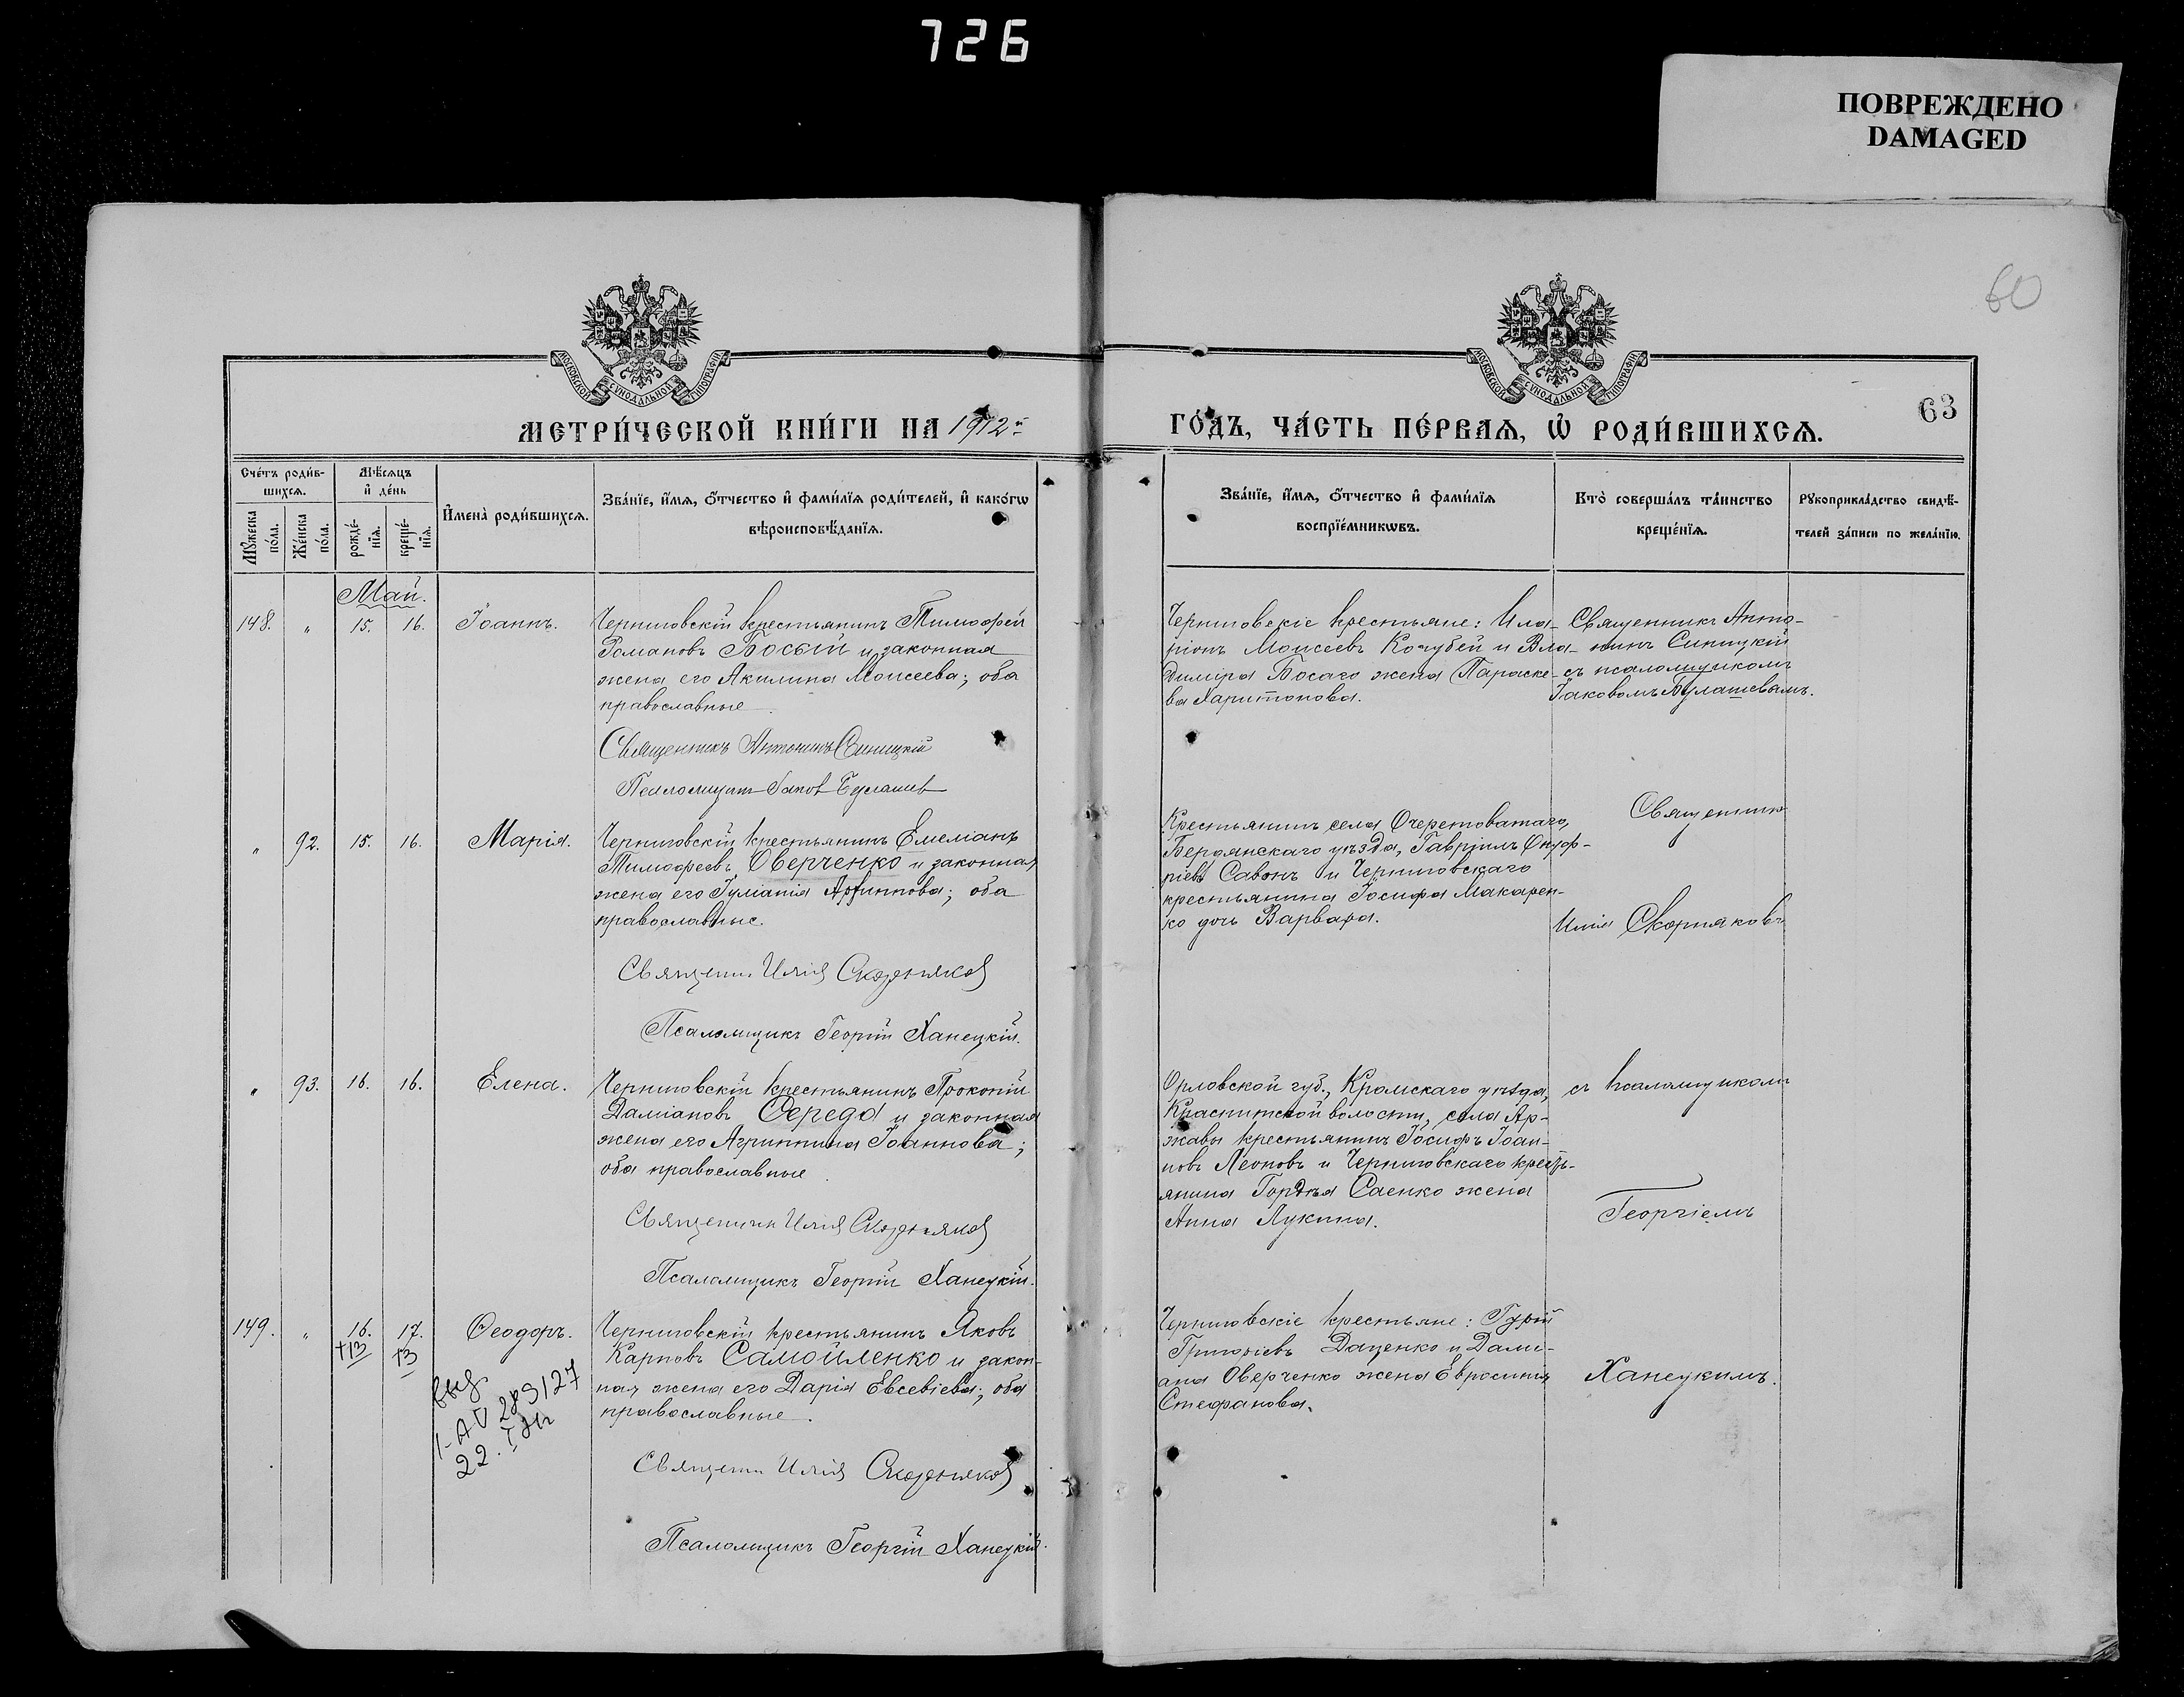 726
ПОВРЕЖДЕНО
DAMAGED
60
63
МОСКОВСКОЙ СУНОДАЛЬНОЙ ТИПОГРАФІИ
МОСКОВСКОЙ СУНОДАЛЬНОЙ ТИПОГРАФІИ
МЕТРИ́ЧЕСКОЙ КНИ́ГИ НА 1912й
ГО́ДЪ, ЧА́СТЬ ПЕ́РВАЯ, Ѡ҆ РОДИ́ВШИХСЯ.
Сче́тъ роди́в-
шихся.
Мѣ́сяцъ
и҆ де́нь
Мꙋ́жеска по́ла.
Же́нска по́ла.
рожде́-
нїя.
креще́-
нїя.
И҆мена̀ роди́вшихся.
Зва́нїе, и҆́мя, ѻ҆́тчество и҆ фами́лїя роди́телей, и҆ како́гѡ
вѣроисповѣ́данїя.
Зва́нїе, и҆́мя, ѻ҆́тчество и҆ фами́лїя
воспрїе́мникѡвъ.
Кто̀ соверша́лъ та́инство
креще́нїя.
Рꙋкоприкла́дство свидѣ́-
телей за́писи по жела́нїю.
Май.
148. " 15. 16. Іоаннъ.
Черниговскій крестьянинъ Тимофей
Романовъ Босый и законная
жена его Акилина Моисеева; оба
православные.
Священникъ Антонинъ Синицкій
Псаломщикъ Іаковъ Булашев
Черниговскіе крестьяне: Ила-
ріонъ Моисеевъ Кочубей и Вла-
диміра Босаго жена Параске-
ва Харитонова.
Священникъ Анто-
нинъ Синицкій
съ псаломщикомъ
Іаковомъ Булашевымъ.
" 92. 15. 16. Марія.
Черниговскій крестьянинъ Емеліанъ
Тимофеевъ Оверченко и законная
жена его Іуліанія; оба
православные.
Священн. Илія Скорняков
Псаломщикъ Георгій Ханецкій.
Крестьянинъ села Очеретоватаго,
Бердянскаго уѣзда, Гавріилъ Онуф-
ріевъ Савонъ и Черниговскаго
крестьянина Іосифа Макарен-
ко дочь Варвара.
Священникъ
Илія Скорняковъ
" 93. 16. 16. Елена.
Черниговскій крестьянинъ Прокопій
Даміановъ Середа и законная
жена его Агриппина Іоаннова;
оба православные.
Священникъ Илія Скорняков
Псаломщикъ Георгій Ханецкій.
Орловской губ., Кромскаго уѣзда,
волости, села Ар-
жавы крестьянинъ Іосифъ Іоан-
новъ Леоновъ и Черниговскаго кресть-
янина Гордѣя Саенко жена
Анна Лукина.
съ псаломщикомъ
Георгіемъ
149. " 16. 17. Ѳеодоръ.
+13 13
Черниговскій крестьянинъ Яковъ
Карповъ Самойленко и закон-
ная жена его Дарія Евсевіева; оба
православные.
Священн. Илія Скорняков
Псаломщикъ Георгій Ханецкій.
выд.
1-АѴ 289127
22.
Черниговскіе крестьяне: Гурій
Григоріевъ Даценко и Дамі-
ана Оверченко жена Евросинія
Стефанова.
Ханецкимъ.